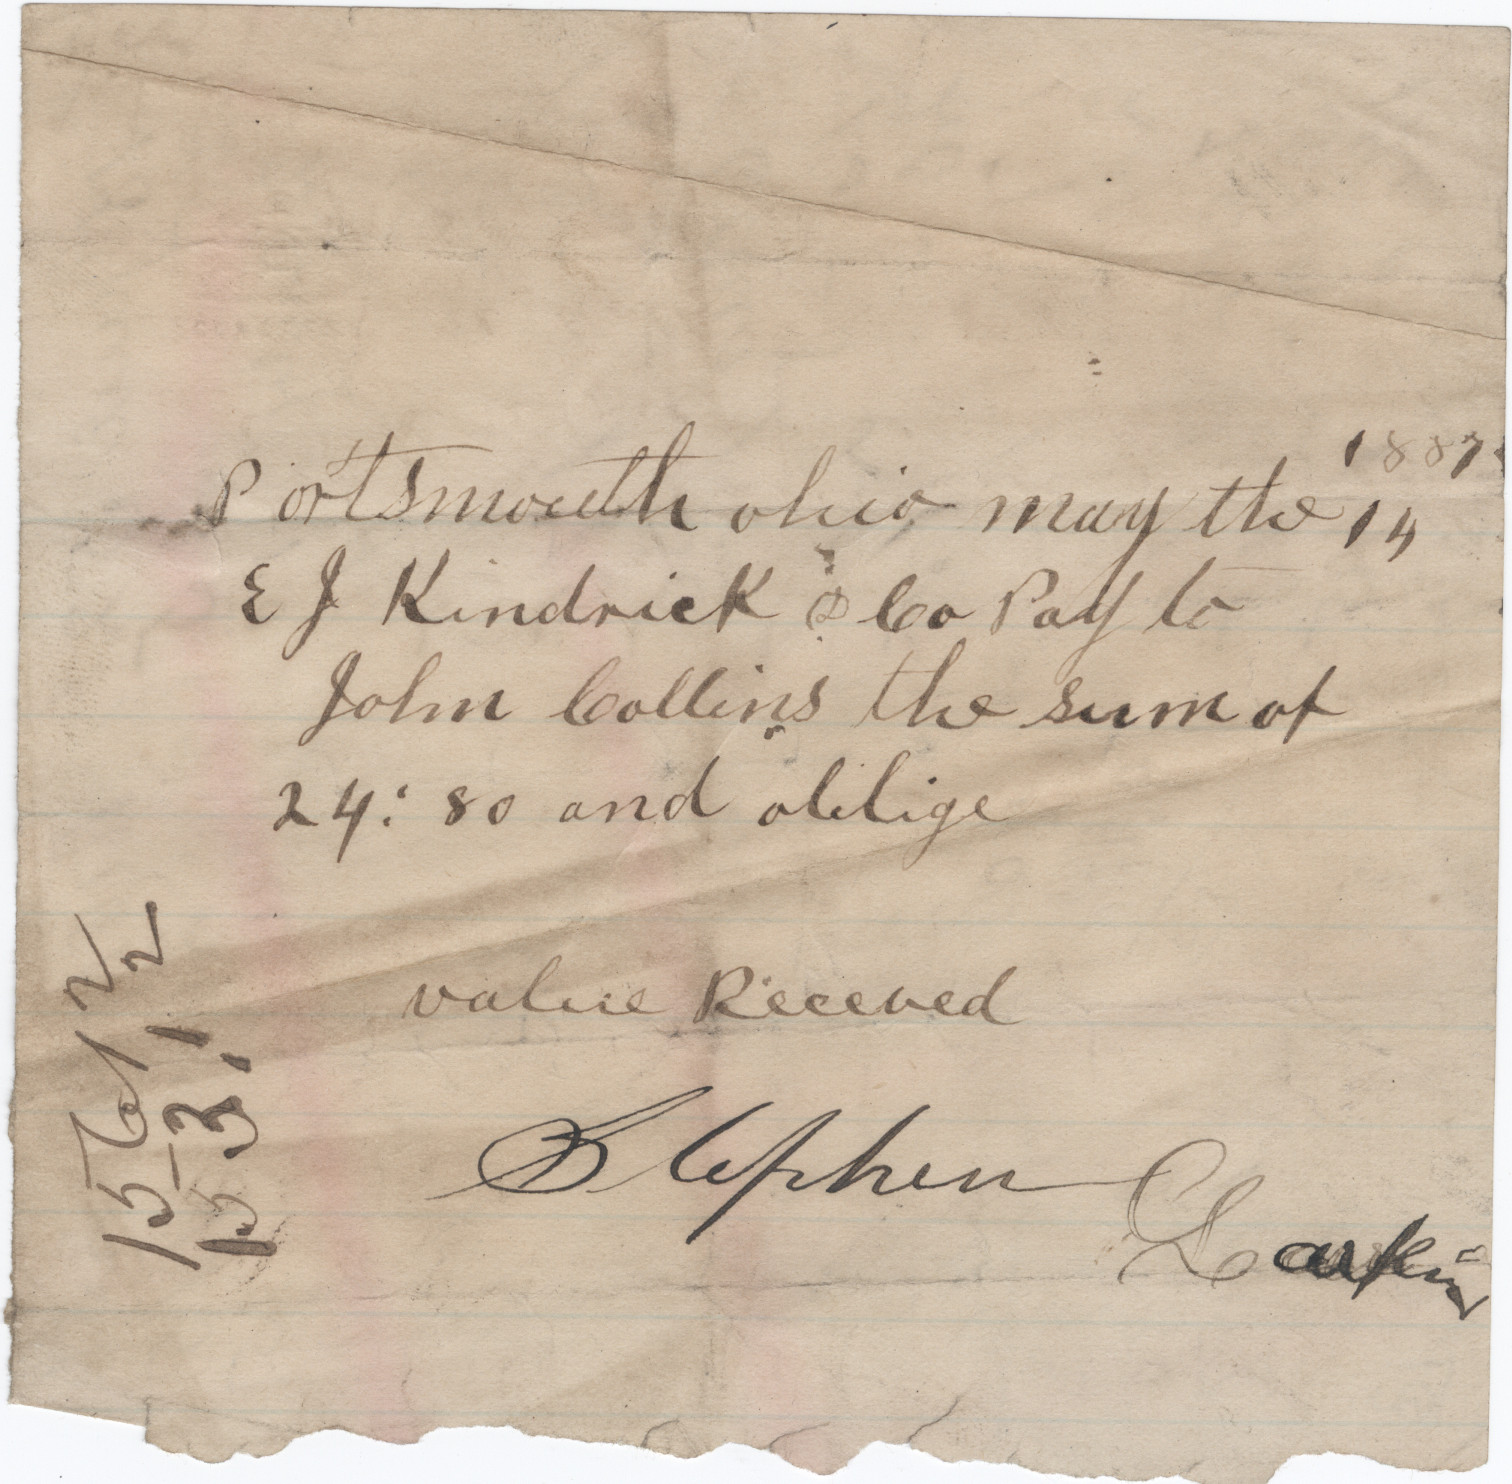 1887
Portsmouth ohio may the 14
E J Kindrick & Co Pay to
John Collins the sum of
24: 80 and oblige
value Receved
Stephen
Larkin